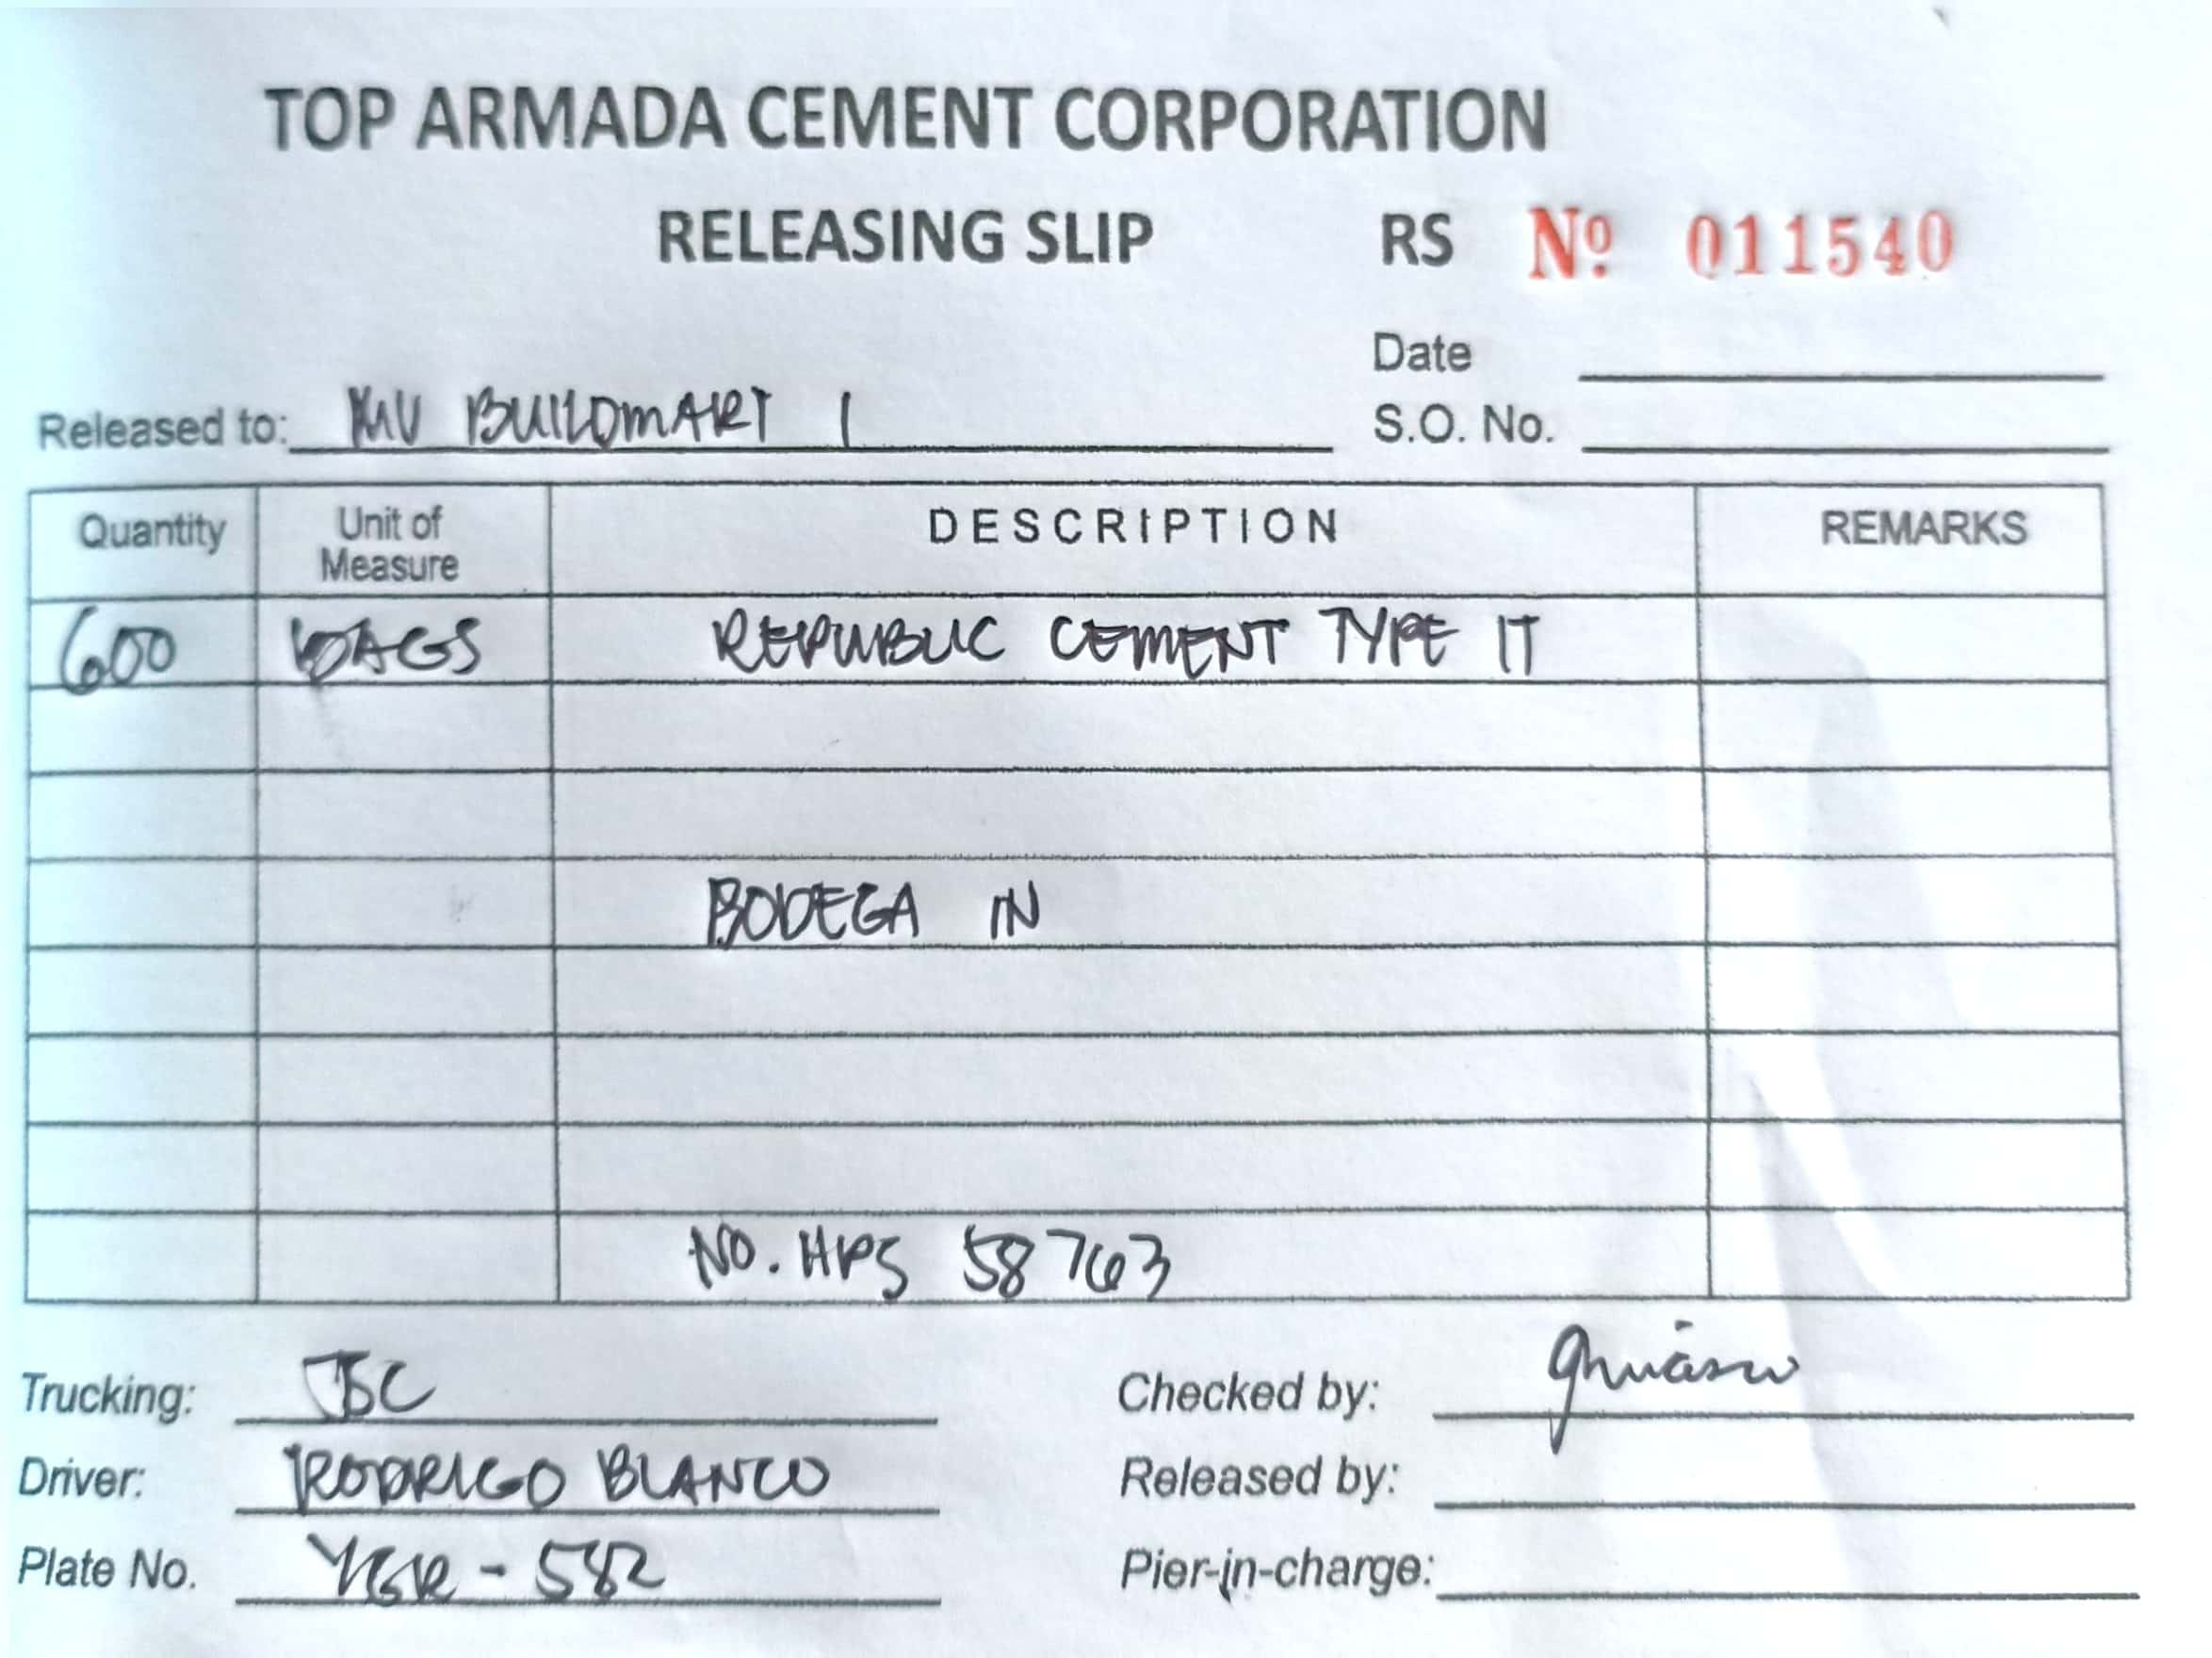 TOP ARMADA CEMENT CORPORATION
RELEASING SLIP RS Nº 011540
Date
Released to: MV BUILDMART 1 S.O. No.
Quantity Unit of Measure DESCRIPTION REMARKS
600 BAGS REPUBLIC CEMENT TYPE 1T
BODEGA IN
NO. HPS 58763
Trucking: JBC Checked by:
Driver: RODRIGO BLANCO Released by:
Plate No. YGR - 582 Pier-in-charge: